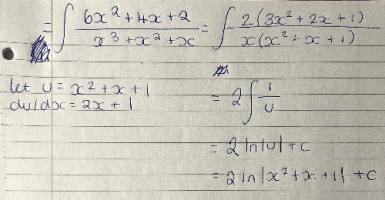 = ∫ 6x² + 4x + 2 / x³ + x² + x = ∫ 2(3x² + 2x + 1) / x(x² + x + 1)
let u = x² + x + 1
du/dx = 2x + 1
= 2 ∫ 1/u
= 2 ln|u| + c
= 2 ln|x² + x + 1| + c